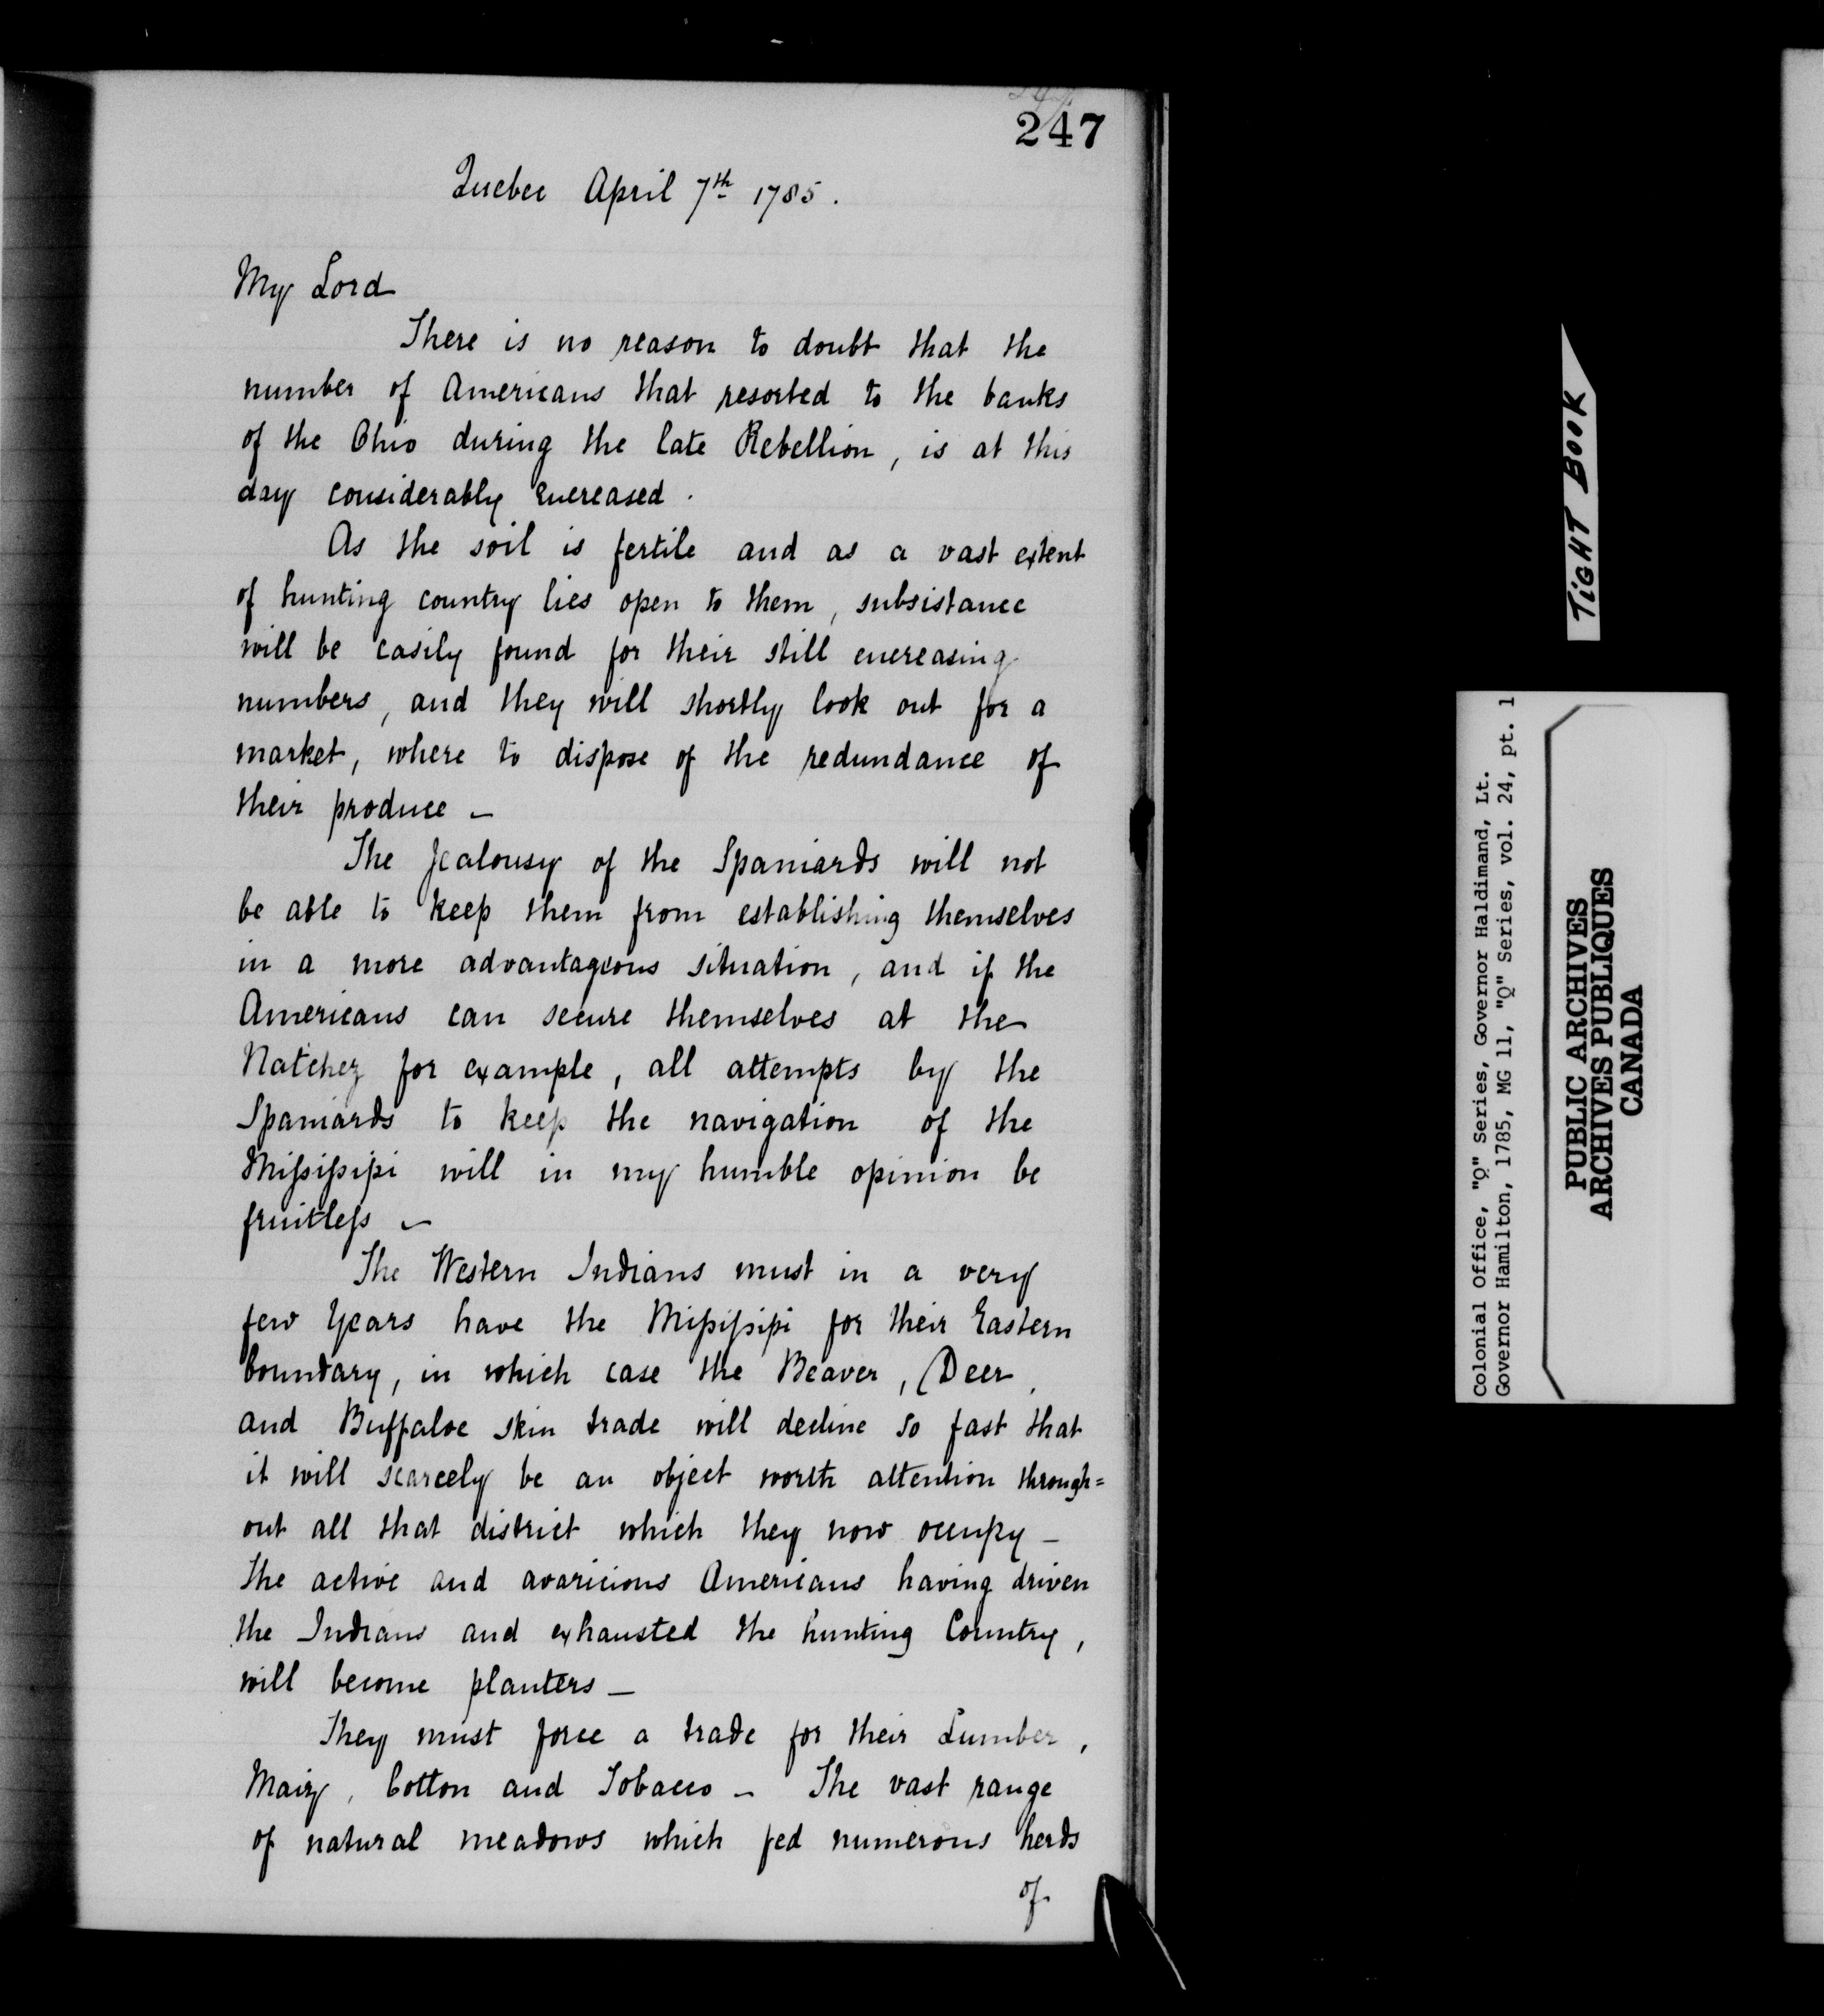 247
Quebec April 7th 1785.
My Lord
There is no reason to doubt that the
number of Americans that resorted to the banks
of the Ohio during the late Rebellion, is at this
day considerably encreased.
As the soil is fertile and as a vast extent
of hunting country lies open to them, subsistance
will be easily found for their still encreasing
numbers, and they will shortly look out for a
market, where to dispose of the redundance of
their produce —
The Jealousy of the Spaniards will not
be able to keep them from establishing themselves
in a more advantageous situation, and if the
Americans can secure themselves at the
Natchez for example, all attempts by the
Spaniards to keep the navigation of the
Missisipi will in my humble opinion be
fruitless —
The Western Indians must in a very
few Years have the Missisipi for their Eastern
boundary, in which case the Beaver, Deer,
and Buffaloe skin trade will decline so fast that
it will scarcely be an object worth attention through=
out all that district which they now occupy —
the active and avaricious Americans having driven
the Indians and exhausted the hunting Country,
will become planters —
They must force a trade for their Lumber,
Maiz, Cotton and Tobacco — The vast range
of natural meadows which fed numerous herds
of
TIGHT BOOK
Colonial Office, "Q" Series, Governor Haldimand, Lt.
Governor Hamilton, 1785, MG 11, "Q" Series, vol. 24, pt. 1
PUBLIC ARCHIVES
ARCHIVES PUBLIQUES
CANADA